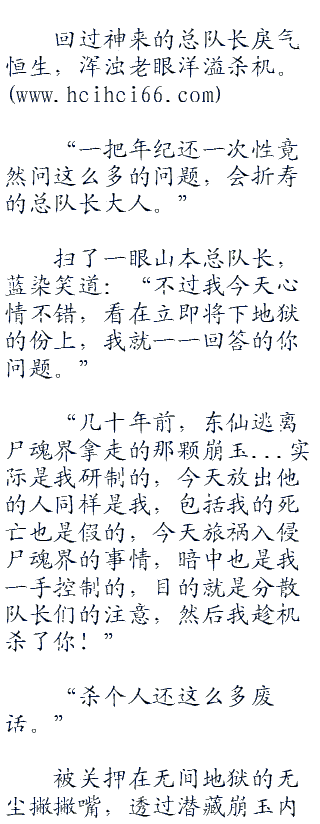 回过神来的总队长戾气
恒生，浑浊老眼洋溢杀机。
(www.hcihci66.com)
“一把年纪还一次性竟
然问这么多的问题，会折寿
的总队长大人。”
扫了一眼山本总队长，
蓝染笑道：“不过我今天心
情不错，看在立即将下地狱
的份上，我就一一回答的你
问题。”
“几十年前，东仙逃离
尸魂界拿走的那颗崩玉...实
际是我研制的，今天放出他
的人同样是我，包括我的死
亡也是假的，今天旅祸入侵
尸魂界的事情，暗中也是我
一手控制的，目的就是分散
队长们的注意，然后我趁机
杀了你！”
“杀个人还这么多废
话。”
被关押在无间地狱的无
尘撇撇嘴，透过潜藏崩玉内